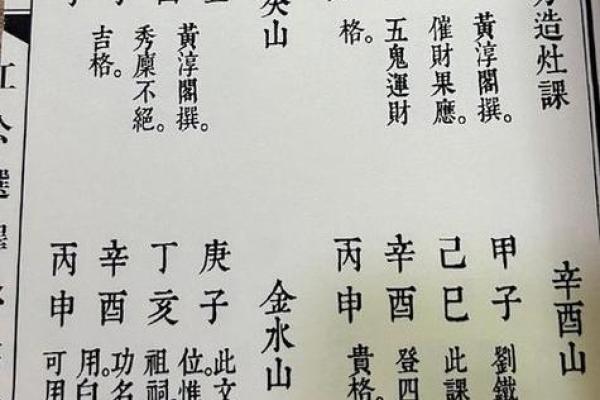 造灶課
黃淳閣撰。
催財果應。
五鬼運財
格。
山
黃淳閣撰。
秀廩不絕。
吉格。
辛酉山
甲子
劉鐵
己巳
此課
辛酉
登四
丙申
貴格。
金水山
庚子
此文
位。惟
丁亥
祖祠
辛酉
功名
用。白
丙申
可用
公選擇